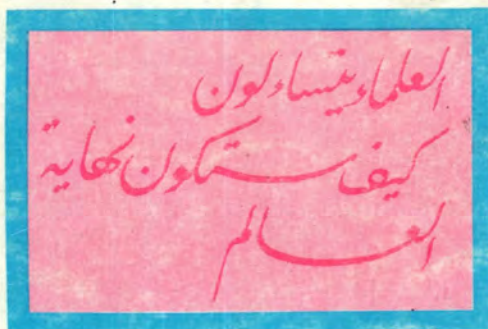 العلماء يتساءلون
كيف ستكون نهاية
العالم